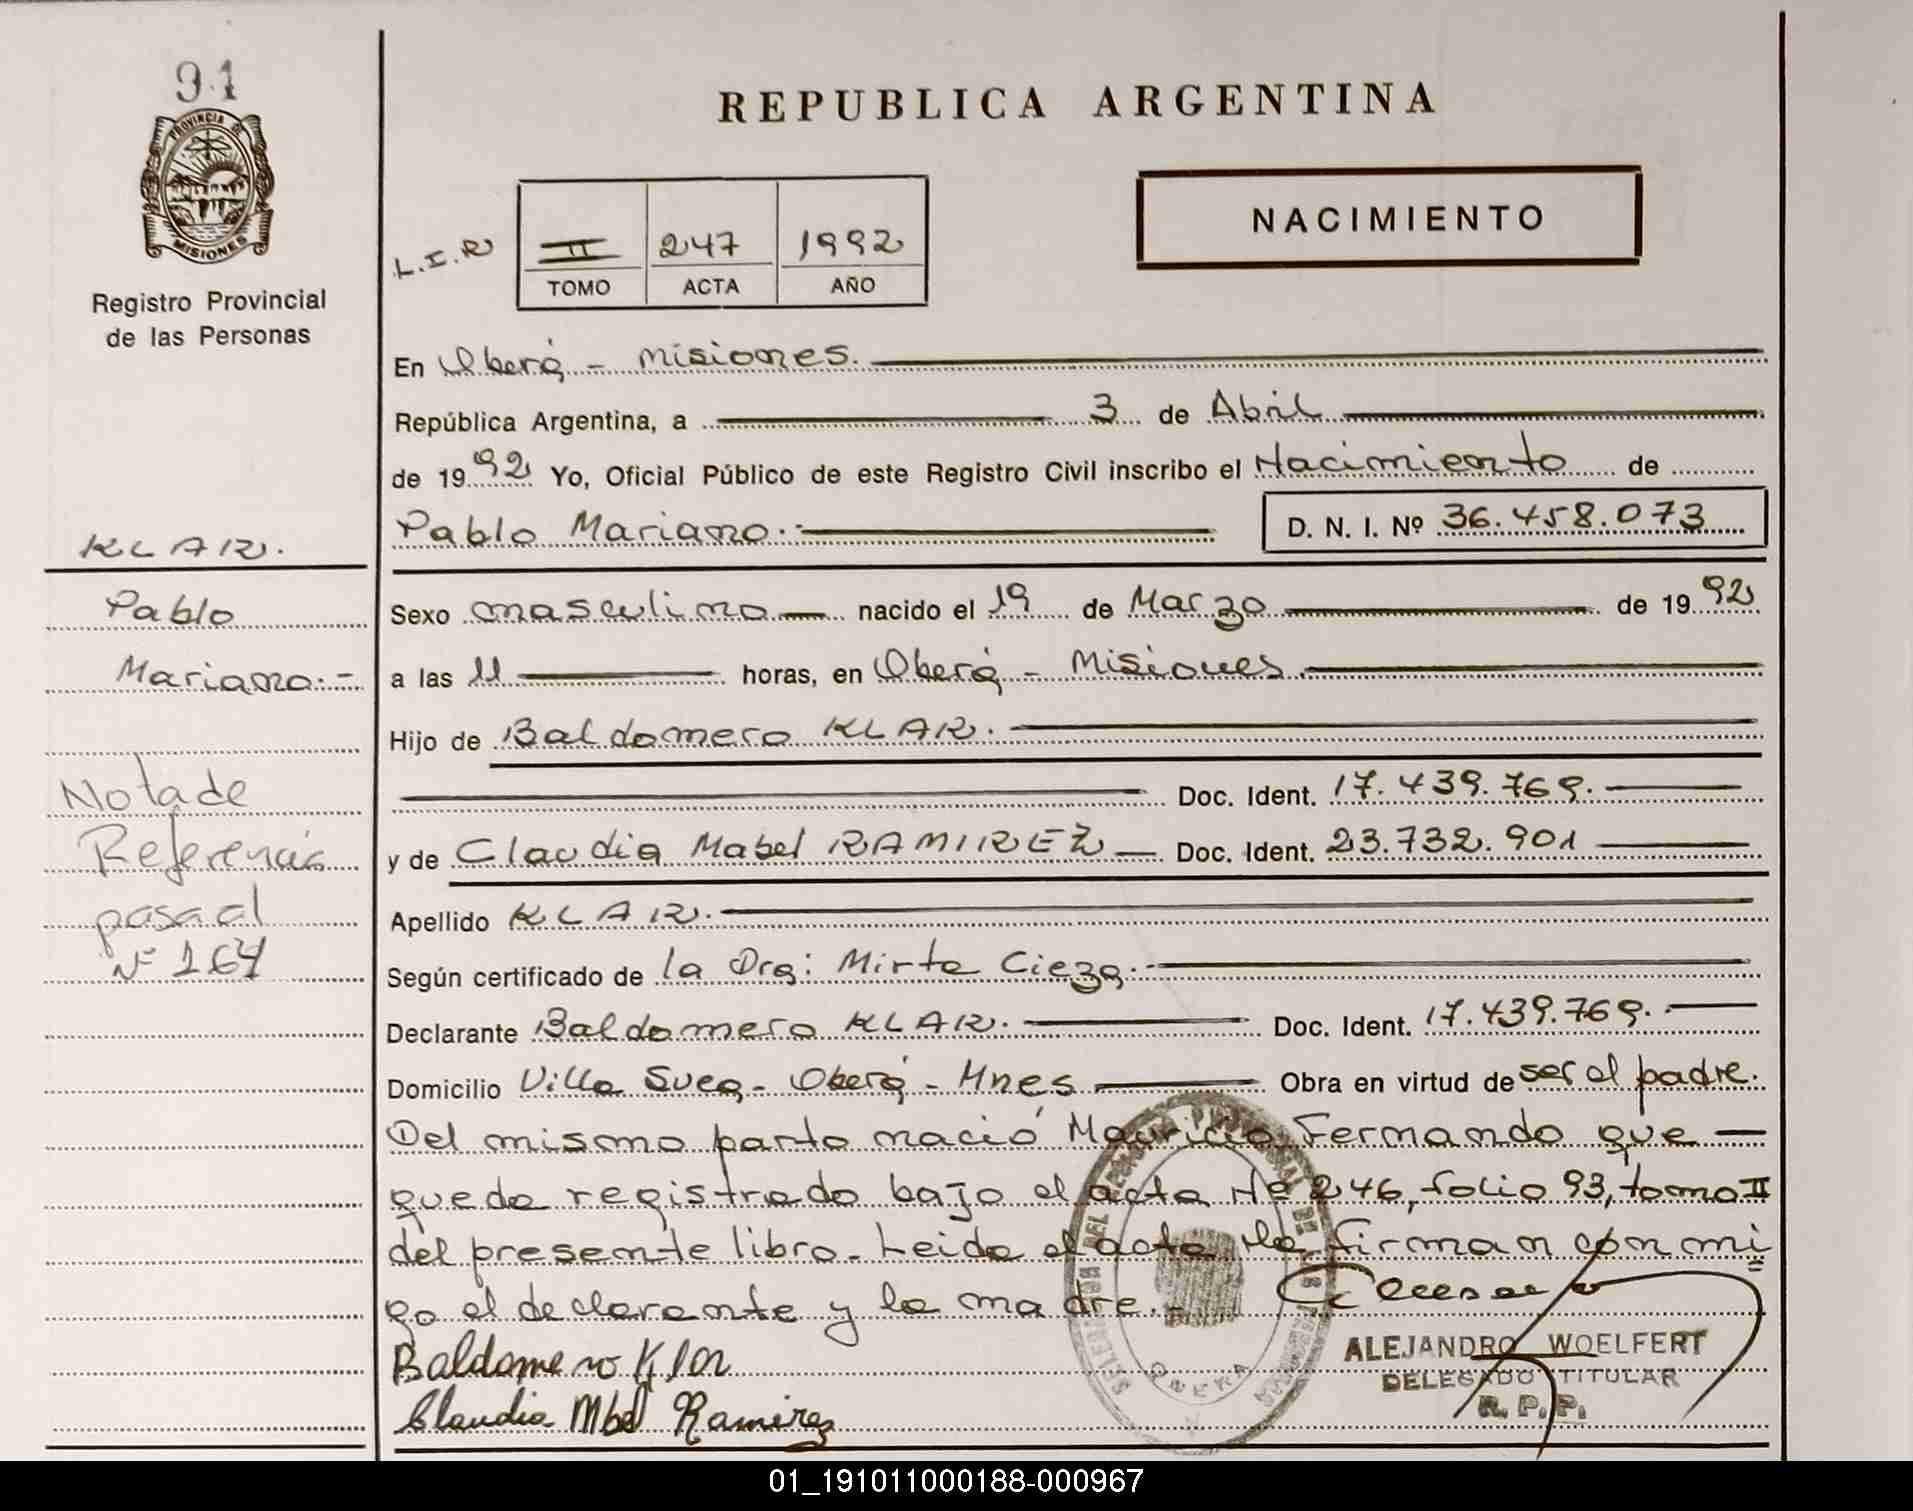 91
PROVINCIA DE
MISIONES
Registro Provincial
de las Personas
REPUBLICA ARGENTINA
NACIMIENTO
L.I.R
II 247 1992
TOMO ACTA AÑO
En Oberá - Misiones.
República Argentina, a 3 de Abril
de 1992 Yo, Oficial Público de este Registro Civil inscribo el Nacimiento de
Pablo Mariano.- D. N. I. Nº 36.458.073
KLAR.
Pablo
Mariano.-
Nota de
Referencia
pasa al
Nº 164
Sexo masculino nacido el 19 de Marzo de 1992
a las 11 horas, en Oberá - Misiones.
Hijo de Baldomero KLAR.
Doc. Ident. 17.439.769.
y de Claudia Mabel RAMIREZ Doc. Ident. 23.732.901
Apellido KLAR.
Según certificado de la Dra: Mirta Cieza.-
Declarante Baldomero KLAR. Doc. Ident. 17.439.769.
Domicilio Villa Suea - Oberá - Mnes Obra en virtud de ser el padre.
Del mismo parto nació Mauricio Fernando que
queda registrado bajo el acta Nº 246, folio 93, tomo II
del presente libro. Leida el acta la firman con mi
go el declarante y la madre.-
Baldomero Klar
Claudia Mbel Ramirez
ALEJANDRO WOELFERT
DELEGADO TITULAR
R. P. P.
OBERA
01_191011000188-000967